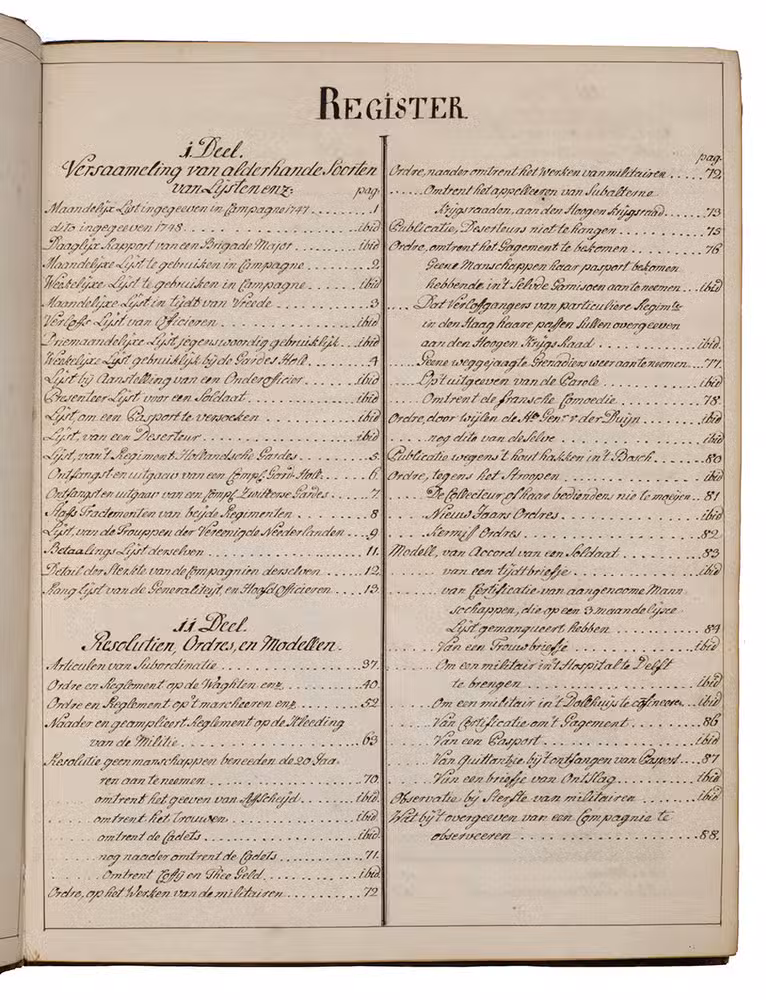 REGISTER.
1 Deel.
Versaameling van alderhande Soorten
van Lijsten enz: pag.
Maandelijxe Lijst ingegeven in Campagne 1747 ........ 1
dito ingegeven 1748 ........ ibid
Daaglijx Rapport van een Brigade Major ........ ibid
Maandelijxe Lijst te gebruiken in Campagne ........ 2
Weekelijxe Lijst te gebruiken in Campagne ........ ibid
Maandelijxe Lijst in tijdt van Vreede ........ 3
Verloffs Lijst van Officieren ........ ibid
Driemaandelijxe Lijst, jegenswoordig gebruiklijk .. ibid
Weekelijxe Lijst gebruiklijk bij de Gardes Holl: ........ 4
Lijst bij Aanstelling van een Onderofficier ........ ibid
Presenteer Lijst voor een Soldaat ........ ibid
Lijst, om een Pasport te versoeken ........ ibid
Lijst, van een Deserteur ........ ibid
Lijst, van 't Regiment Hollandsche Gardes ........ 5
Ontfangst en uitgaav van een Comp: Gard: Holl: ... 6
Ontfangst en uitgaav van een Comp: Zwitserse Gardes ... 7
Staff Tractementen van beijde Regimenten ........ 8
Lijst, van de Trouppen der Vereenigde Neederlanden ... 9
Betaalings Lijst derselven ........ 11.
Detail der Sterkte van de Compagnien derselven ........ 12.
Rang Lijst van de Generaliteijt, en Hoofd Officieren ........ 13.
11 Deel.
Resolutien, Ordres, en Modellen.
Articulen van Subordinatie ........ 37.
Ordre en Reglement op de Waghten enz ........ 40.
Ordre en Reglement op 't mancheeren enz ........ 52
Naader en geamplieert Reglement op de Kleeding
van de Militie ........ 63
Resolutie geen manschappen beneeden de 20 Jaa-
ren aan te neemen ........ 70.
omtrent het geeven van Affscheijd ........ ibid.
omtrent het Trouwen ........ ibid
omtrent de Cadets ........ ibid
nog naader omtrent de Cadets ........ 71.
Omtrent Coffij en Thee Geld ........ ibid.
Ordre, op het Werken van de militairen ........ 72
pag.
Ordre, naader omtrent het Werken van militairen ........ 72
Omtrent het appelleeren van Subalterne
Krijgsraaden, aan den Hoogen Krijgsraad ........ 73
Publicatie, Deserteurs niet te hangen ........ 75
Ordre, omtrent het Gagement te bekomen ........ 76
Geene Manschappen haar pasport bekomen
hebbende in't Selvde Garnisoen aan te neemen ... ibid
Dat Verloffgangers van particuliere Regimts
in den Haag haare passen sullen overgeeven
aan den Hoogen Krijgs Raad ........ ibid.
Geene weggejaagte Grenadiers weer aan te neemen ... 77
Op 't uitgeeven van de Parole ........ ibid
Omtrent de fransche Comoedie ........ 78
Ordre, door wijlen de Hr Genr v: der Duijn ........ ibid
nog dito van deselve ........ ibid
Publicatie wegens 't hout hakken in 't Bosch ........ 80
Ordre, tegens het Stroopen ........ ibid
De Collecteur, of haar bediendens nie te moeijen .. 81
Nieuw Jaars Ordres ........ ibid
Kermiss Ordres ........ 82
Modell, van Accord van een Soldaat ........ 83
van een tijdtbriefje ........ ibid
van Certificatie van aangenoome Mann
schappen, die op een 3 maandelijxe
Lijst gemanqueert hebben ........ 84
Van een Trouwbriefje ........ ibid
Om een militair in't Hospital te Delft
te brengen ........ ibid
Om een militair in 't Dolhuijs te confineeren ... ibid
Van Certificatie om 't Gagement ........ 86
Van een Pasport ........ ibid
Van Quittantzie bij't ontfangen van Pasport ... 87
Van een briefje van Ontslag ........ ibid
Observatie bij Sterfte van militairen ........ ibid
Wat bij't overgeeven van een Compagnie te
observeeren ........ 88.